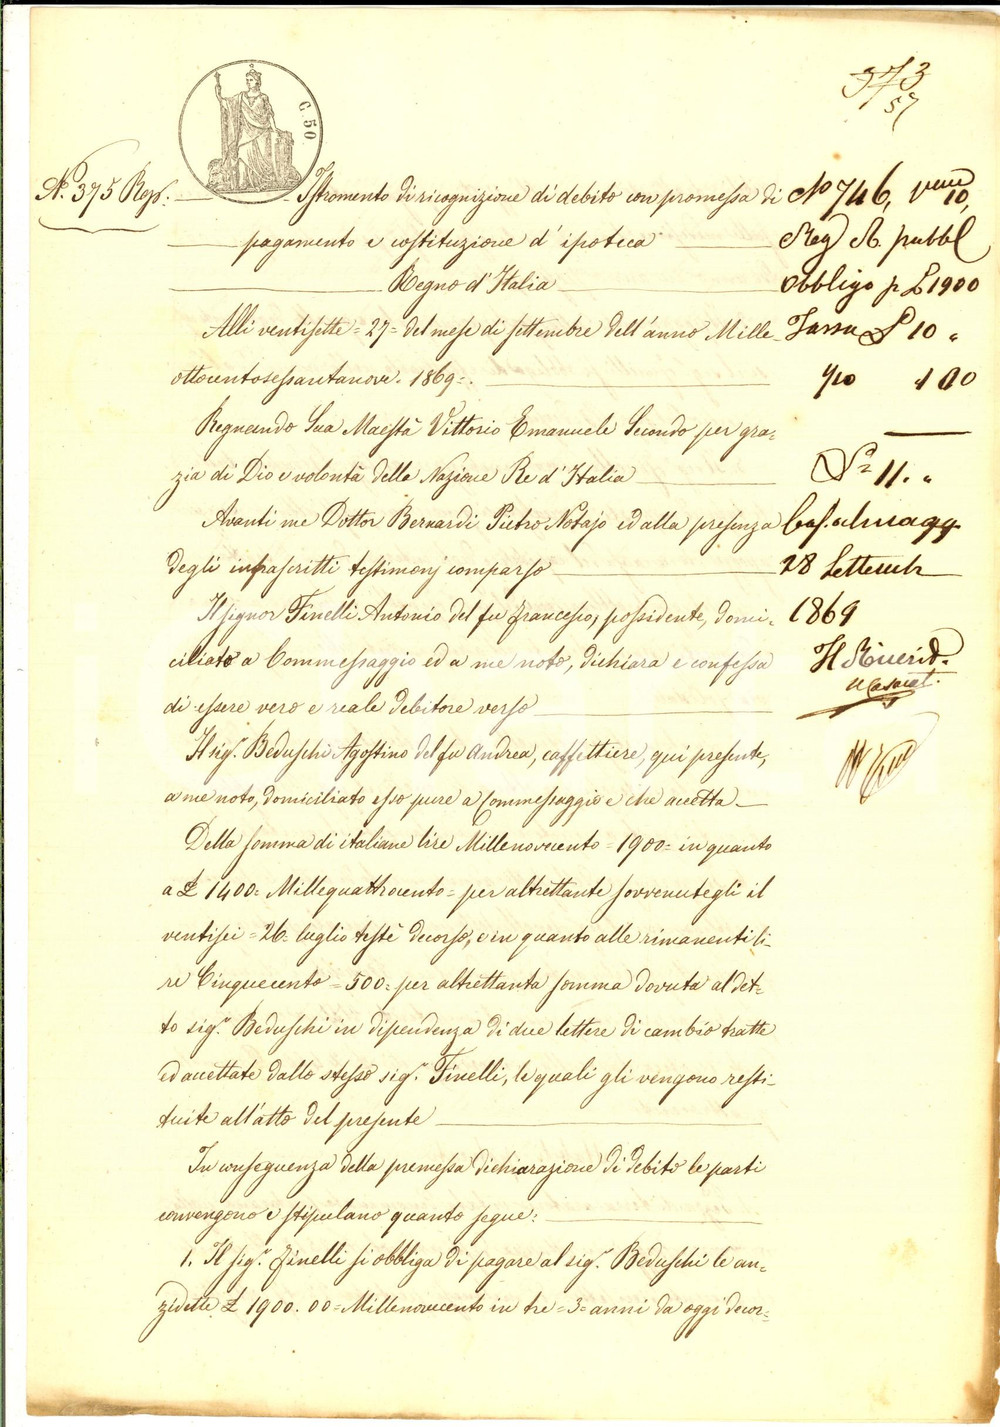 373
57
C. 50
N. 375 Rep.
Istromento di ricognizione di debito con promessa di
pagamento e costituzione d'ipoteca
Regno d'Italia
Alli ventisette = 27 = del mese di settembre dell'anno Mille
ottocentosessantanove. 1869 =.
Regnando Sua Maestà Vittorio Emanuele Secondo per gra=
zia di Dio e volontà della Nazione Re d'Italia
Avanti me Dottor Bernardi Pietro Notajo ed alla presenza
degli infrascritti testimonj comparso
Il signor Finelli Antonio del fu Francesco, possidente, domi=
ciliato a Commessaggio ed a me noto, dichiara e confessa
di essere vero e reale debitore verso
Il sig.r Beduschi Agostino del fu Andrea, caffettiere, qui presente,
a me noto, domiciliato esso pure a Commessaggio e che accetta
Della somma di italiane lire Millenovecento = 1900 = in quanto
a £ 1400 = Millequattrocento = per altrettante sovvenutegli il
ventisei = 26 = luglio testè decorso, e in quanto alle rimanenti li=
re Cinquecento = 500 = per altrettanta somma dovuta al det=
to sig.r Beduschi in dipendenza di due lettere di cambio tratte
ed accettate dallo stesso sig.r Finelli, le quali gli vengono resti=
tuite all'atto del presente
In conseguenza della premessa dichiarazione di debito le parti
convengono e stipulano quanto segue:
1. Il sig.r Finelli si obbliga di pagare al sig.r Beduschi le an=
zidette £ 1900.00 = Millenovecento in tre = 3 = anni da oggi decor=
No 746, 10,
Reg A. pubbl
Obbligo p £ 1900
Tassa £ 10 "
1 00
11. "
Casalmagg
28 Settemb
1869
Il